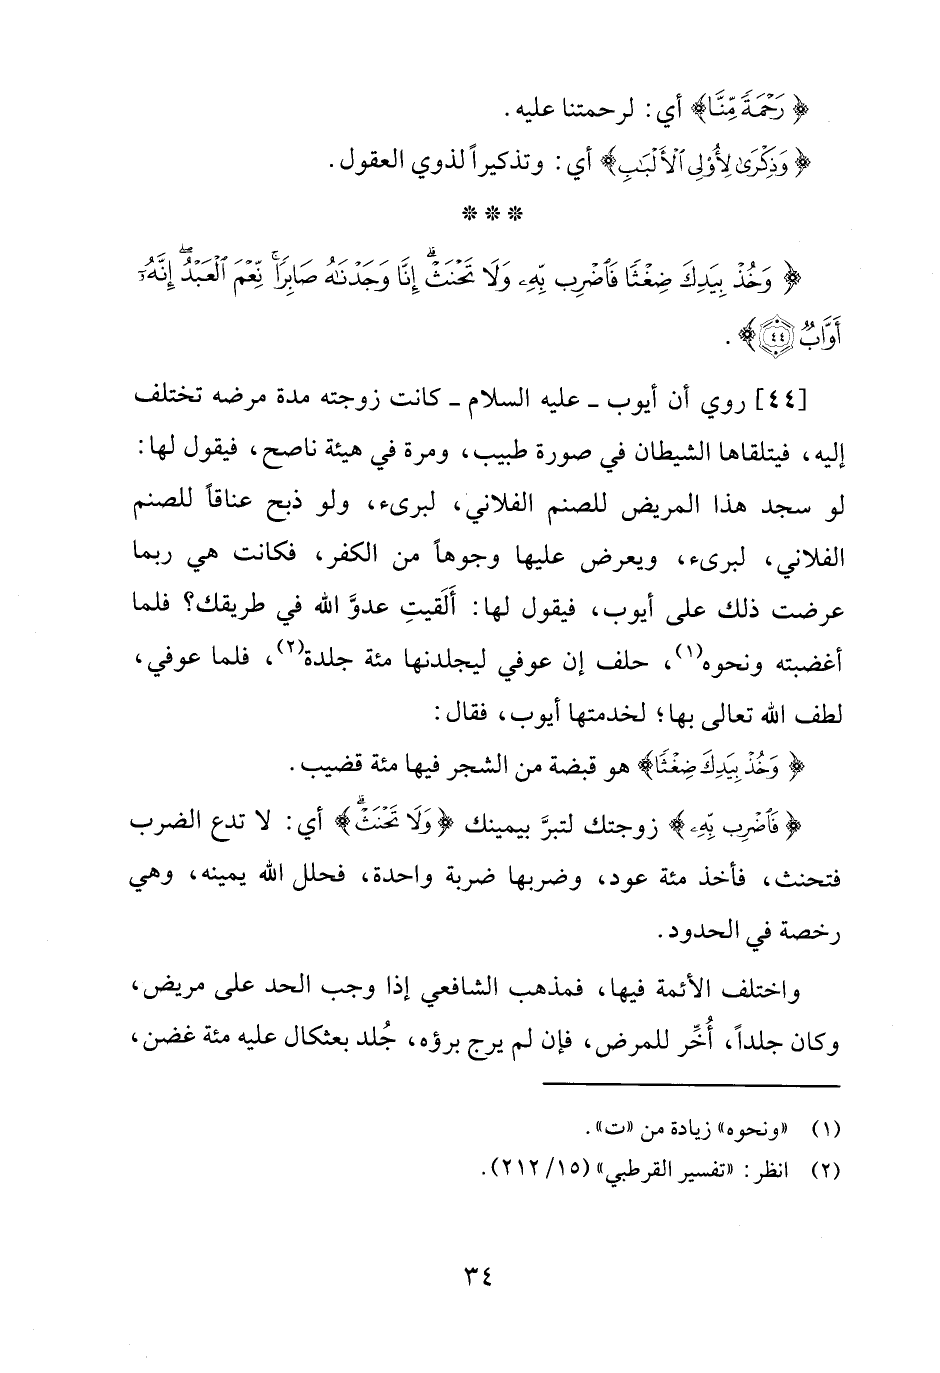 ﴿رَحْمَةً مِّنَّا﴾ أي: لرحمتنا عليه.
﴿وَذِكْرَىٰ لِأُوْلِي ٱلْأَلْبَٰبِ﴾ أي: وتذكيراً لذوي العقول.
***
﴿وَخُذْ بِيَدِكَ ضِغْثًا فَٱضْرِب بِّهِۦ وَلَا تَحْنَثْ ۗ إِنَّا وَجَدْنَٰهُ صَابِرًا ۚ نِّعْمَ ٱلْعَبْدُ ۖ إِنَّهُۥٓ
أَوَّابٌ ﴿٤٤﴾﴾.
[٤٤] روي أن أيوب - عليه السلام - كانت زوجته مدة مرضه تختلف
إليه، فيتلقاها الشيطان في صورة طبيب، ومرة في هيئة ناصح، فيقول لها:
لو سجد هذا المريض للصنم الفلاني، لبرىء، ولو ذبح عناقاً للصنم
الفلاني، لبرىء، ويعرض عليها وجوهاً من الكفر، فكانت هي ربما
عرضت ذلك على أيوب، فيقول لها: أَلَقيتِ عدوَّ الله في طريقك؟ فلما
أغضبته ونحوه(١)، حلف إن عوفي ليجلدنها مئة جلدة(٢)، فلما عوفي،
لطف الله تعالى بها؛ لخدمتها أيوب، فقال:
﴿وَخُذْ بِيَدِكَ ضِغْثًا﴾ هو قبضة من الشجر فيها مئة قضيب.
﴿فَٱضْرِب بِّهِۦ﴾ زوجتك لتبرَّ بيمينك ﴿وَلَا تَحْنَثْ ۗ﴾ أي: لا تدع الضرب
فتحنث، فأخذ مئة عود، وضربها ضربة واحدة، فحلل الله يمينه، وهي
رخصة في الحدود.
واختلف الأئمة فيها، فمذهب الشافعي إذا وجب الحد على مريض،
وكان جلداً، أُخِّر للمرض، فإن لم يرج برؤه، جُلد بعثكال عليه مئة غضن،
(١) «ونحوه» زيادة من «ت».
(٢) انظر: «تفسير القرطبي» (١٥/ ٢١٢).
٣٤